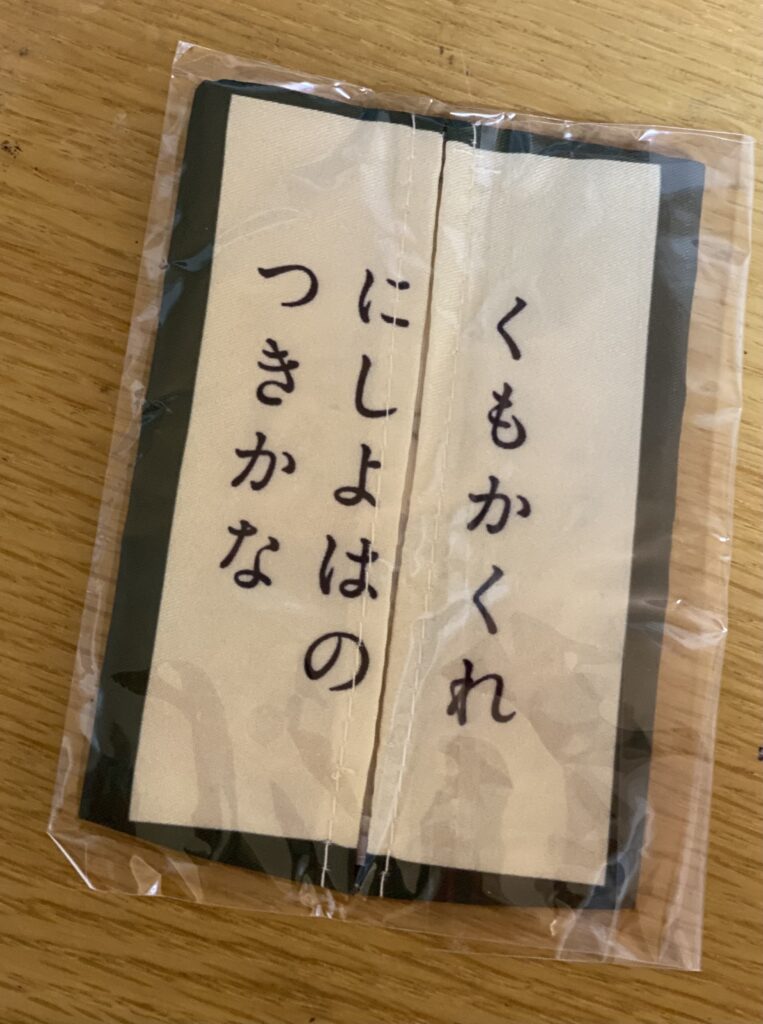 くもかくれ
にしよはの
つきかな